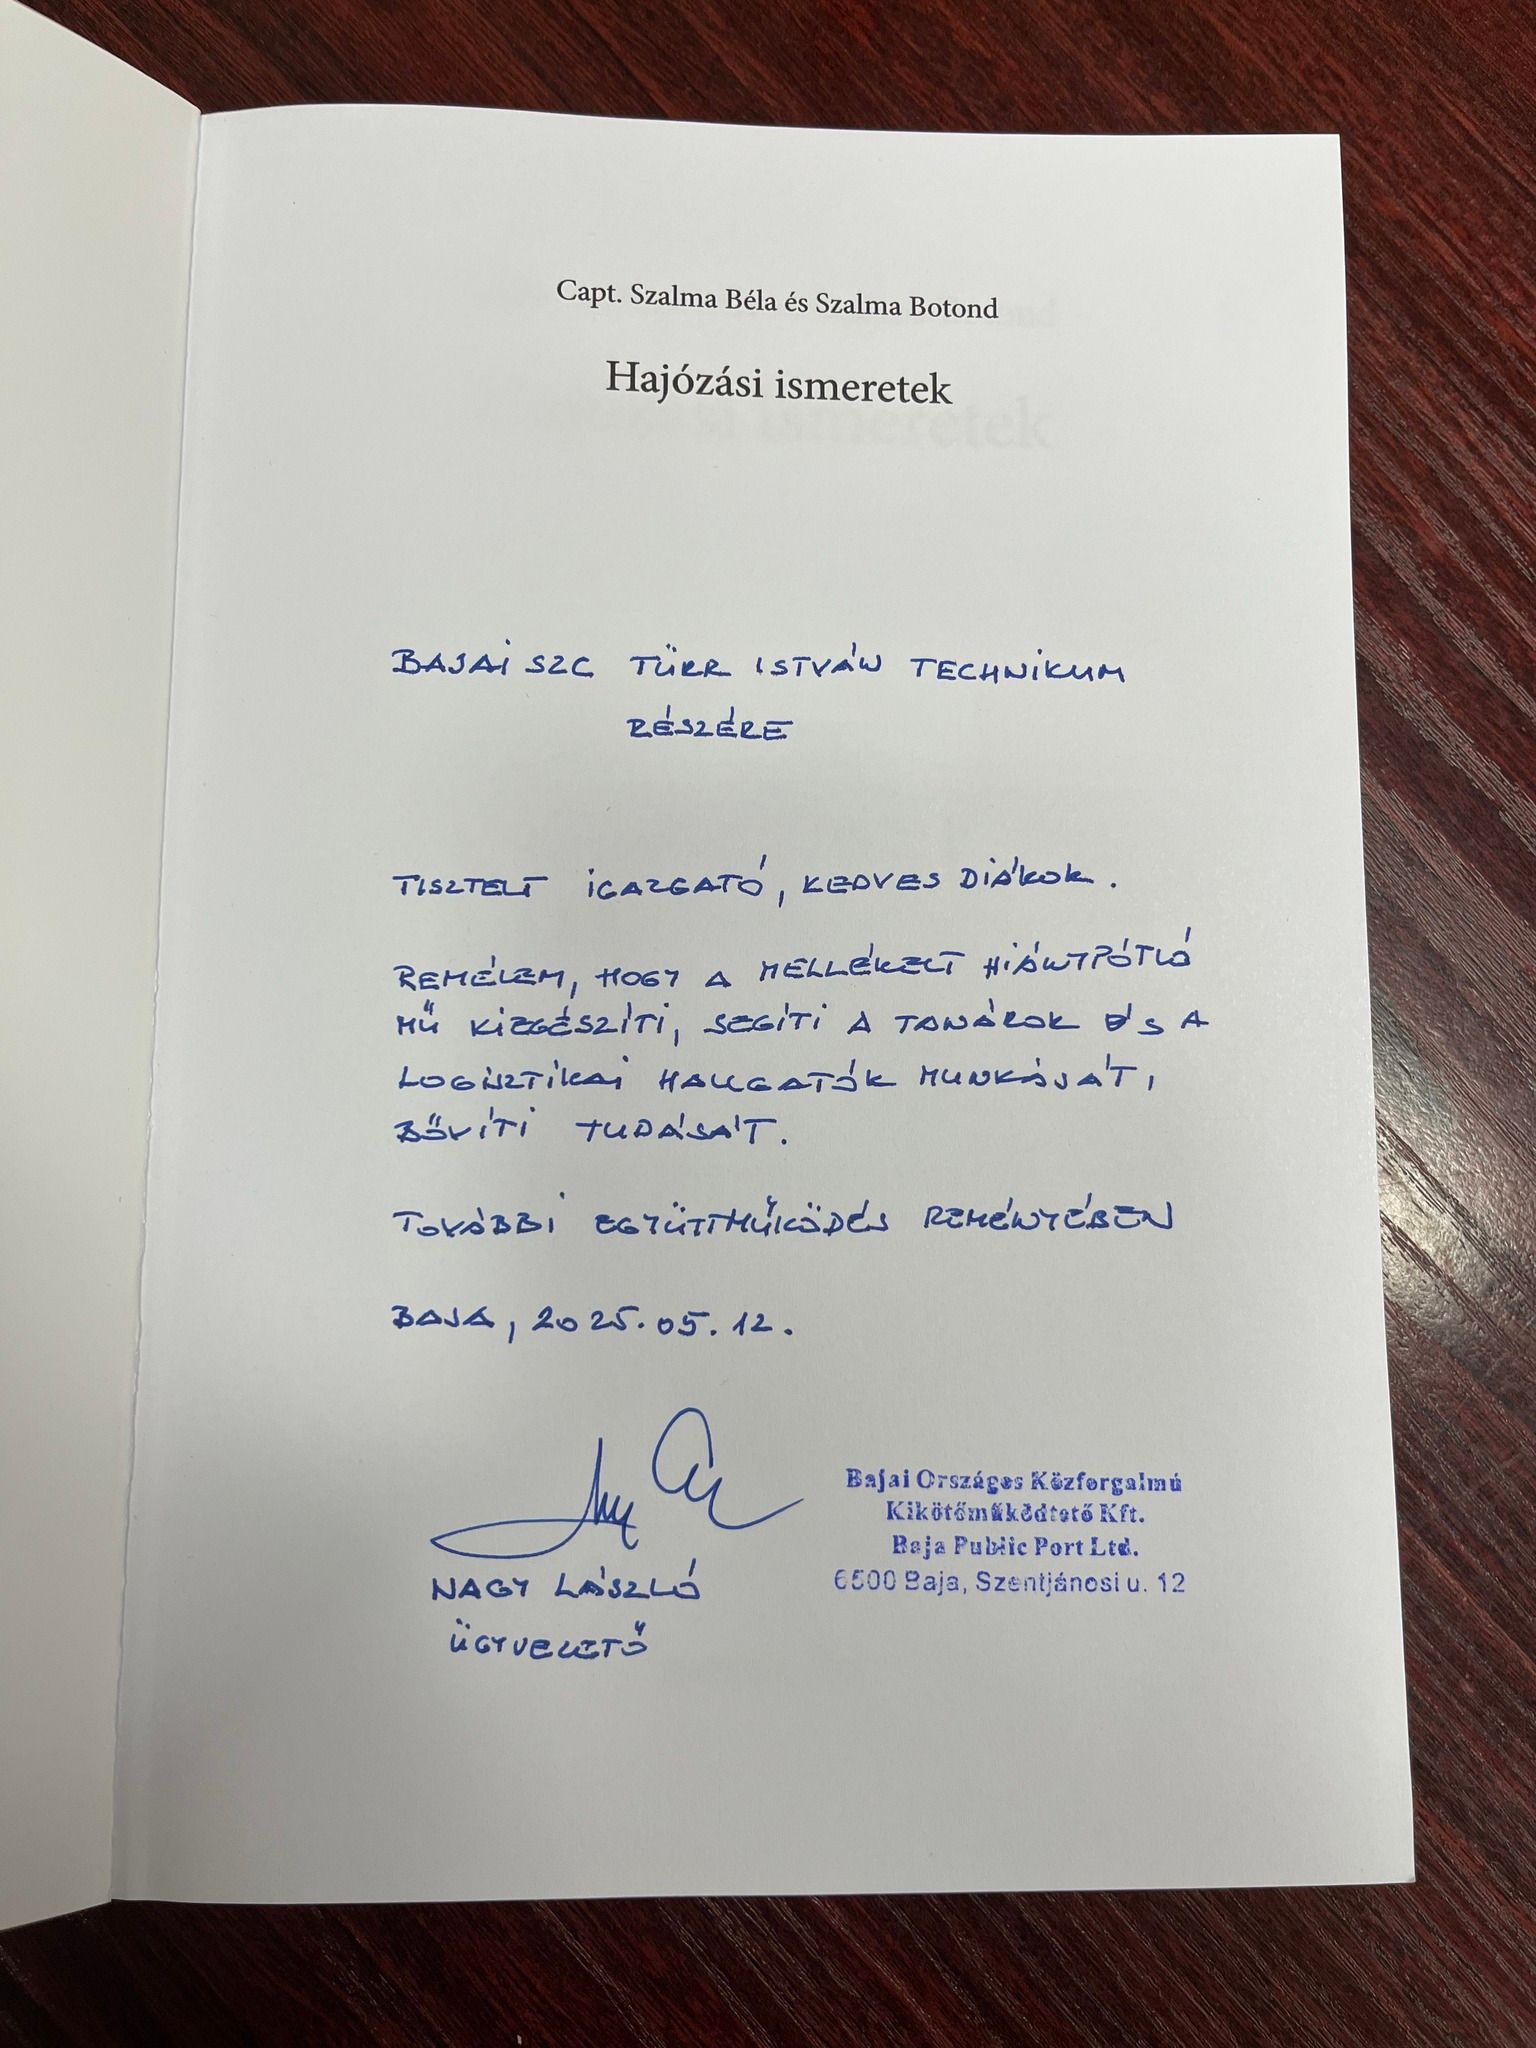 Capt. Szalma Béla és Szalma Botond
Hajózási ismeretek
BAJAI SZC TÜRR ISTVÁN TECHNIKUM
RÉSZÉRE
TISZTELT IGAZGATÓ, KEDVES DIÁKOK.
REMÉLEM, HOGY A MELLÉKELT HIÁNYPÓTLÓ
MŰ KIEGÉSZÍTI, SEGÍTI A TANÁROK ÉS A
LOGISZTIKAI HALLGATÓK MUNKÁJÁT,
BŐVÍTI TUDÁSÁT.
TOVÁBBI EGYÜTTMŰKÖDÉS REMÉNYÉBEN
BAJA, 2025.05.12.
NAGY LÁSZLÓ
ÜGYVEZETŐ
Bajai Országos Közforgalmú
Kikötőműködtető Kft.
Baja Public Port Ltd.
6500 Baja, Szentjánosi u. 12